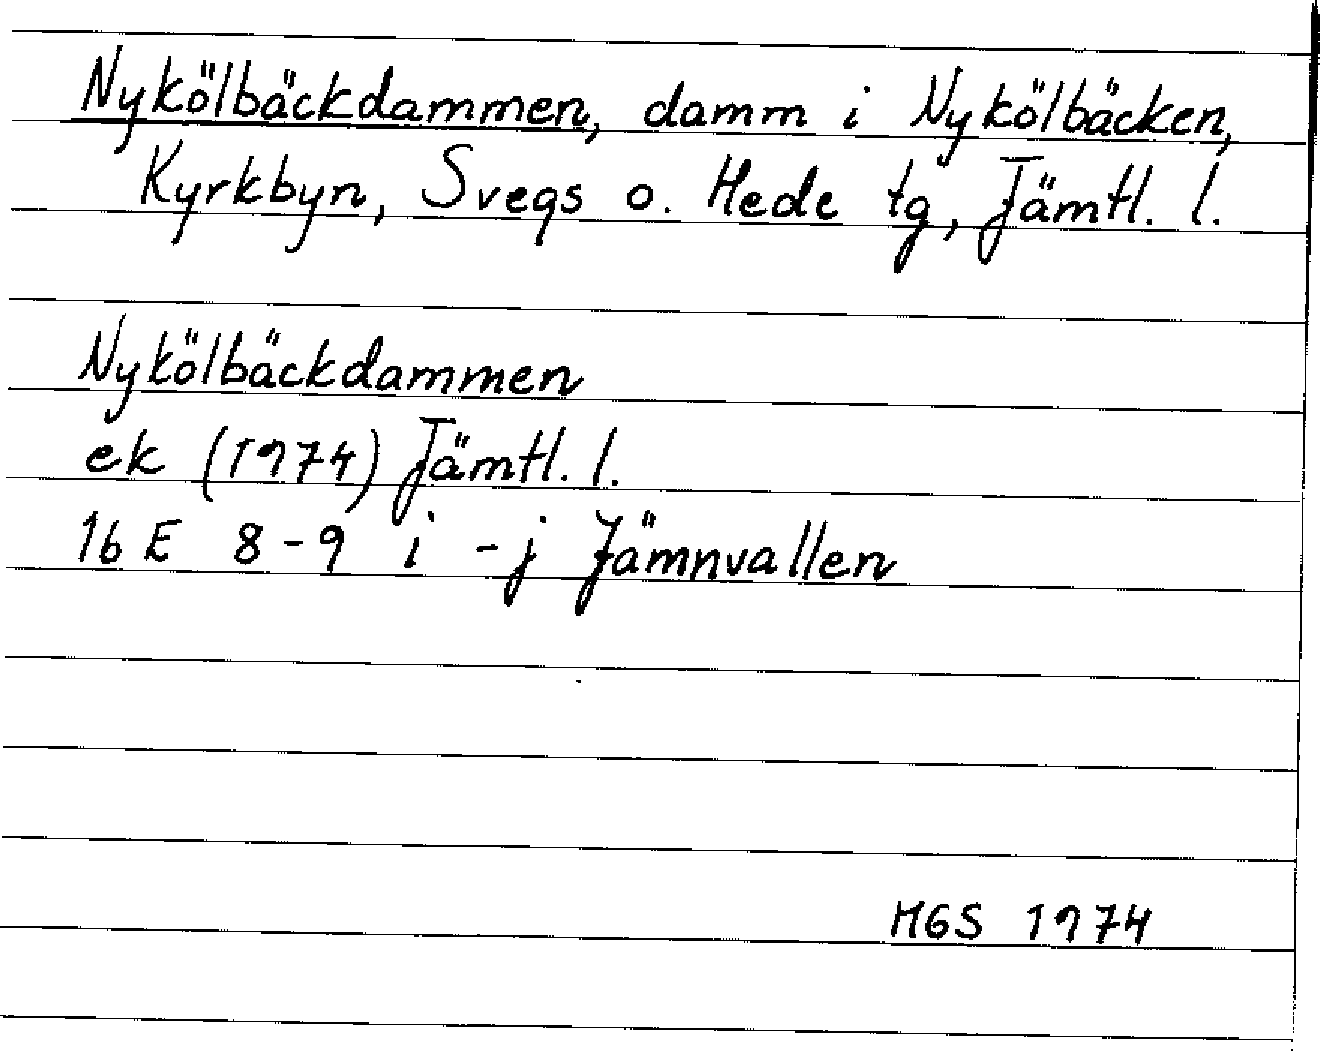 Nykölbäckdammen, damm i Nykölbäcken,
Kyrkbyn, Svegs o. Hede tg, Jämtl. l.
Nykölbäckdammen
ek (1974) Jämtl. l.
16 E 8-9 i -j Jämnvallen
MGS 1974